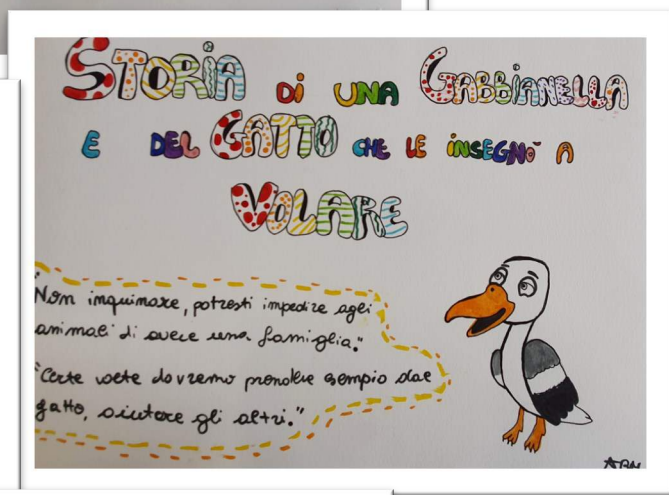 STORIA DI UNA GABBIANELLA
E DEL GATTO CHE LE INSEGNÒ A
VOLARE
"Non inquinare, potresti impedire agli
animali di avere una famiglia."
"Certe volte dovremo prendere esempio dal
gatto, aiutare gli altri."